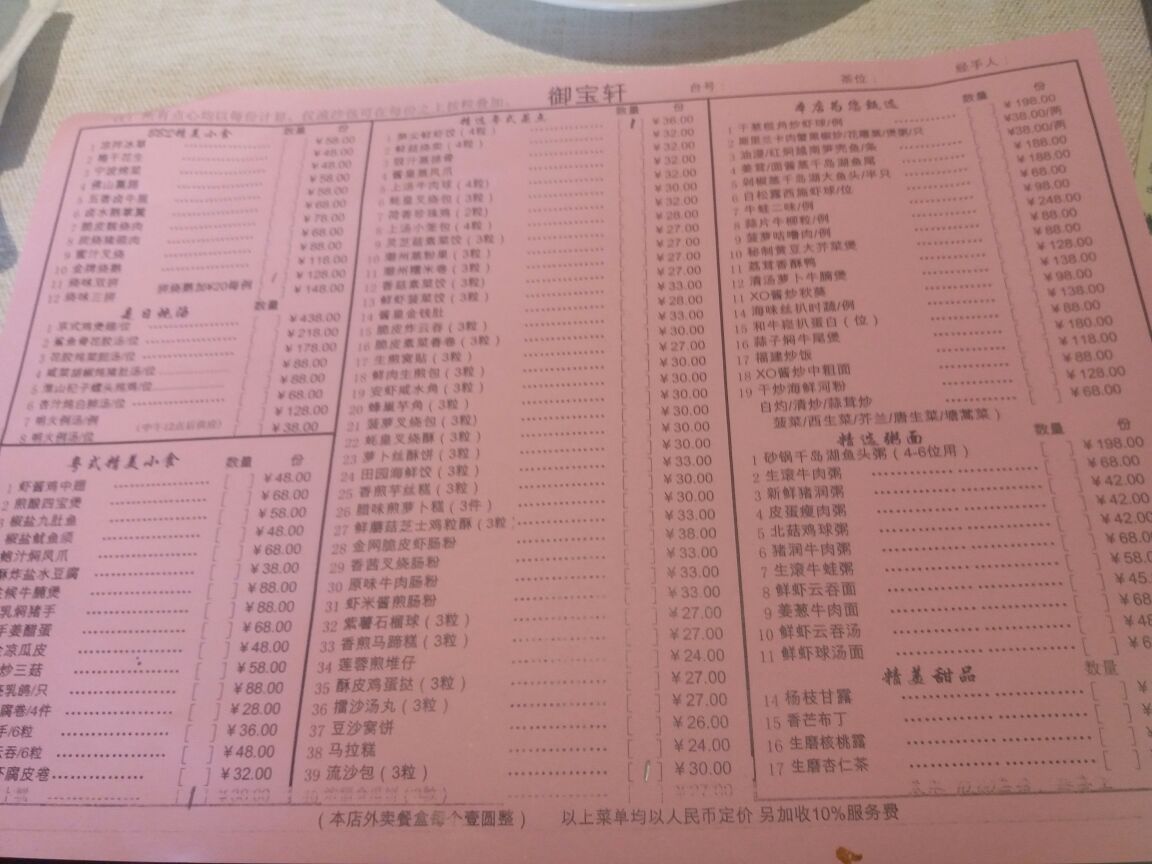 御宝轩
台号：
茶位：
经手人：
精美小食
数量 份
1 凉拌冰草 ¥58.00
¥48.00
¥48.00
¥58.00
5 五香卤牛腱 ¥88.00
¥68.00
7 脆皮靓烧肉 ¥78.00
¥68.00
9 蜜汁叉烧 ¥88.00
10 金牌烧鹅 ¥118.00
11 烧味双拼 ¥128.00
12 烧味三拼 拼烧鹅加¥20每例 ¥148.00
数量
¥438.00
¥218.00
¥178.00
¥88.00
¥88.00
¥68.00
7 明火例汤/例 ¥128.00
8 明火例汤/位 (中午12点后供应) ¥38.00
粤式精美小食 数量 份
1 虾酱鸡中翅 ¥48.00
2 煎酿四宝煲 ¥68.00
椒盐九肚鱼 ¥58.00
椒盐鱿鱼须 ¥48.00
鲍汁焖凤爪 ¥68.00
酥炸盐水豆腐 ¥38.00
候牛腩煲 ¥88.00
乳焖猪手 ¥88.00
姜醋蛋 ¥68.00
凉瓜皮 ¥48.00
炒三菇 ¥58.00
乳鸽/只 ¥88.00
腐卷/4件 ¥28.00
手/6粒 ¥36.00
云吞/6粒 ¥48.00
腐皮卷 ¥32.00
精选粤式茶点 数量 份
1 鲜虾饺（4粒） ¥36.00
2 烧卖（4粒） ¥32.00
3 豉汁蒸排骨 ¥32.00
4 酱皇蒸凤爪 ¥32.00
5 上汤牛肉球（4粒） ¥32.00
6 蚝皇叉烧包（3粒） ¥30.00
7 荷香珍珠鸡（2粒） ¥32.00
8 上汤小笼包（4粒） ¥28.00
9 灵芝菇素菜饺（3粒） ¥27.00
10 潮州蒸粉果（3粒） ¥27.00
11 潮州糯米卷（3粒） ¥27.00
12 香菇素菜饺（3粒） ¥27.00
13 鲜虾菠菜饺（3粒） ¥33.00
14 酱皇金钱肚 ¥28.00
15 脆皮炸云吞（3粒） ¥33.00
16 脆皮素菜春卷（3粒） ¥30.00
17 生煎窝贴（3粒） ¥27.00
18 鲜肉生煎包（3粒） ¥30.00
19 安虾咸水角（3粒） ¥30.00
20 蜂巢芋角（3粒） ¥30.00
21 菠萝叉烧包（3粒） ¥30.00
22 蚝皇叉烧酥（3粒） ¥30.00
23 萝卜丝酥饼（3粒） ¥30.00
24 田园海鲜饺（3粒） ¥33.00
25 香煎芋丝糕（3粒） ¥30.00
26 腊味煎萝卜糕（3件） ¥30.00
27 鲜蘑菇芝士鸡粒酥（3粒 ¥33.00
28 金网脆皮虾肠粉 ¥38.00
29 香茜叉烧肠粉 ¥33.00
30 原味牛肉肠粉 ¥33.00
31 虾米酱煎肠粉 ¥33.00
32 紫薯石榴球（3粒） ¥27.00
33 香煎马蹄糕（3粒） ¥27.00
34 莲蓉煎堆仔 ¥24.00
35 酥皮鸡蛋挞（3粒） ¥27.00
36 擂沙汤丸（3粒） ¥27.00
37 豆沙窝饼 ¥26.00
38 马拉糕 ¥24.00
39 流沙包（3粒） ¥30.00
本店为您甄选 数量 份
1 干葱椒角炒虾球/例 ¥198.00
2 斯里兰卡肉蟹 ¥38.00/两
3 油浸/红焖越南笋壳鱼/条 ¥38.00/两
4 姜茸/面酱蒸千岛湖鱼尾 ¥188.00
5 剁椒蒸千岛湖大鱼头/半只 ¥188.00
6 白松露西施虾球/位 ¥68.00
7 牛蛙二味/例 ¥98.00
8 蒜片牛柳粒/例 ¥248.00
9 菠萝咕噜肉/例 ¥88.00
10 秘制黄豆大芥菜煲 ¥88.00
11 荔茸香酥鸭 ¥128.00
12 清汤萝卜牛腩煲 ¥138.00
11 XO酱炒秋葵 ¥98.00
14 海味丝扒时蔬/例 ¥138.00
15 和牛崧扒蛋白（位） ¥88.00
16 蒜子焖牛尾煲 ¥180.00
17 福建炒饭 ¥118.00
18 XO酱炒中粗面 ¥88.00
19 干炒海鲜河粉 ¥128.00
白灼/清炒/蒜茸炒 ¥68.00
菠菜/西生菜/芥兰/唐生菜/塘蒿菜）
精选粥面 数量 份
1 砂锅千岛湖鱼头粥（4-6位用） ¥198.00
2 生滚牛肉粥 ¥68.00
3 新鲜猪润粥 ¥42.00
4 皮蛋瘦肉粥 ¥42.00
5 北菇鸡球粥 ¥42.00
6 猪润牛肉粥 ¥68.0
7 生滚牛蛙粥 ¥58.0
8 鲜虾云吞面 ¥45.
9 姜葱牛肉面 ¥68
10 鲜虾云吞汤 ¥48
11 鲜虾球汤面 ¥6
精美甜品 数量
14 杨枝甘露
15 香芒布丁
16 生磨核桃露
17 生磨杏仁茶
（本店外卖餐盒每个壹圆整） 以上菜单均以人民币定价 另加收10%服务费